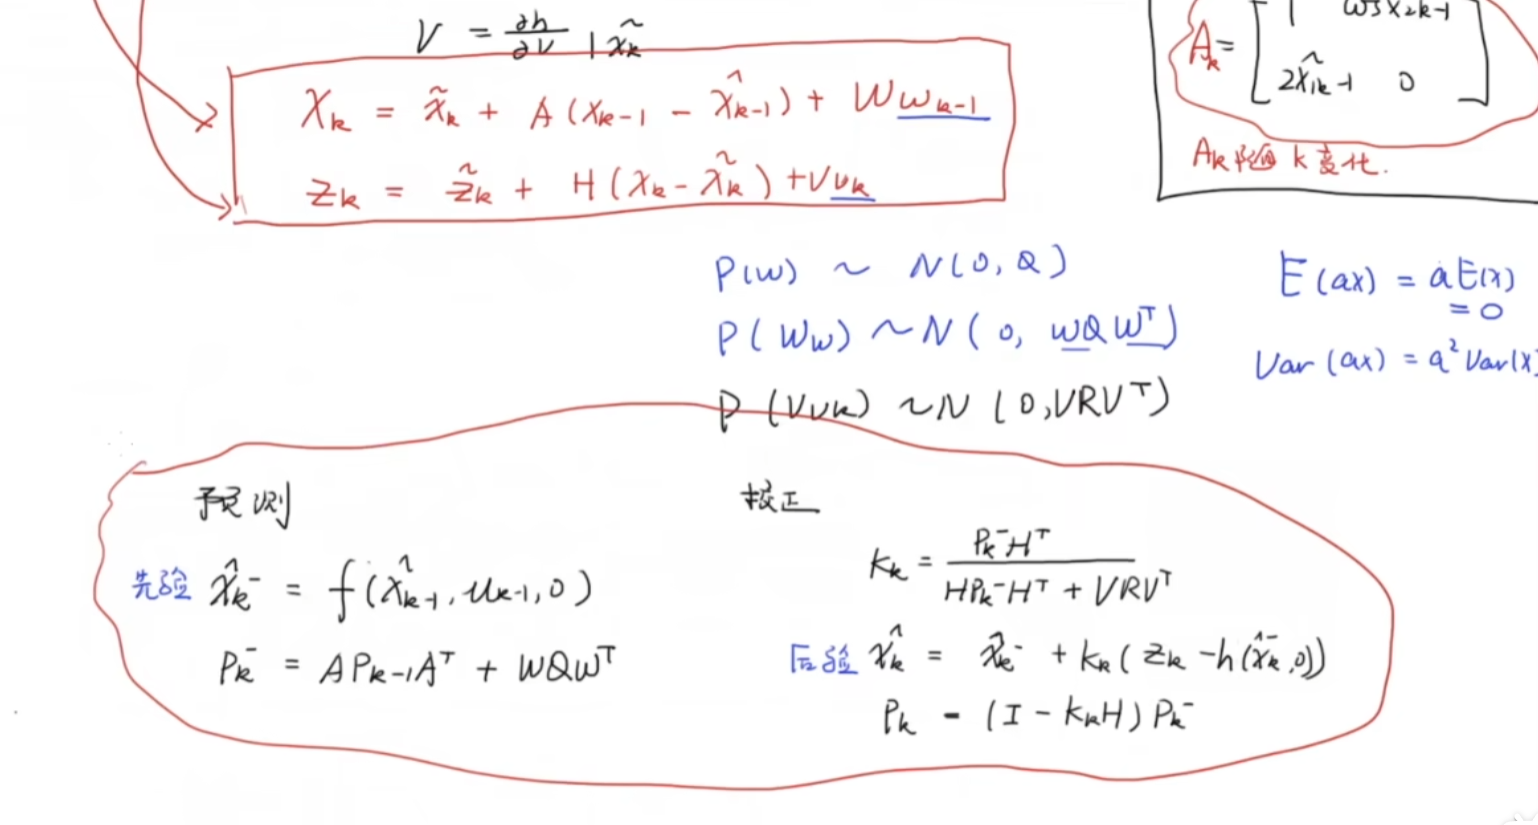 V = ∂h/∂V | x̃k
Xk = x̃k + A (Xk-1 - x̂k-1) + W wk-1
Zk = z̃k + H (Xk - x̃k) + V vk
Ak = [ 1 cosx̂2k-1
2x̂1k-1 0 ]
Ak 随 k 变化.
P(w) ~ N(0, Q)
P(Ww) ~ N(0, WQWᵀ)
P(Vvk) ~ N(0, VRVᵀ)
E(ax) = aE(x)
= 0
Var(ax) = a²Var(x)
预测
先验 x̂k⁻ = f(x̂k-1, uk-1, 0)
Pk⁻ = APk-1Aᵀ + WQWᵀ
校正
Kk = Pk⁻Hᵀ / HPk⁻Hᵀ + VRVᵀ
后验 x̂k = x̂k⁻ + Kk(Zk - h(x̂k⁻, 0))
Pk = (I - KkH) Pk⁻